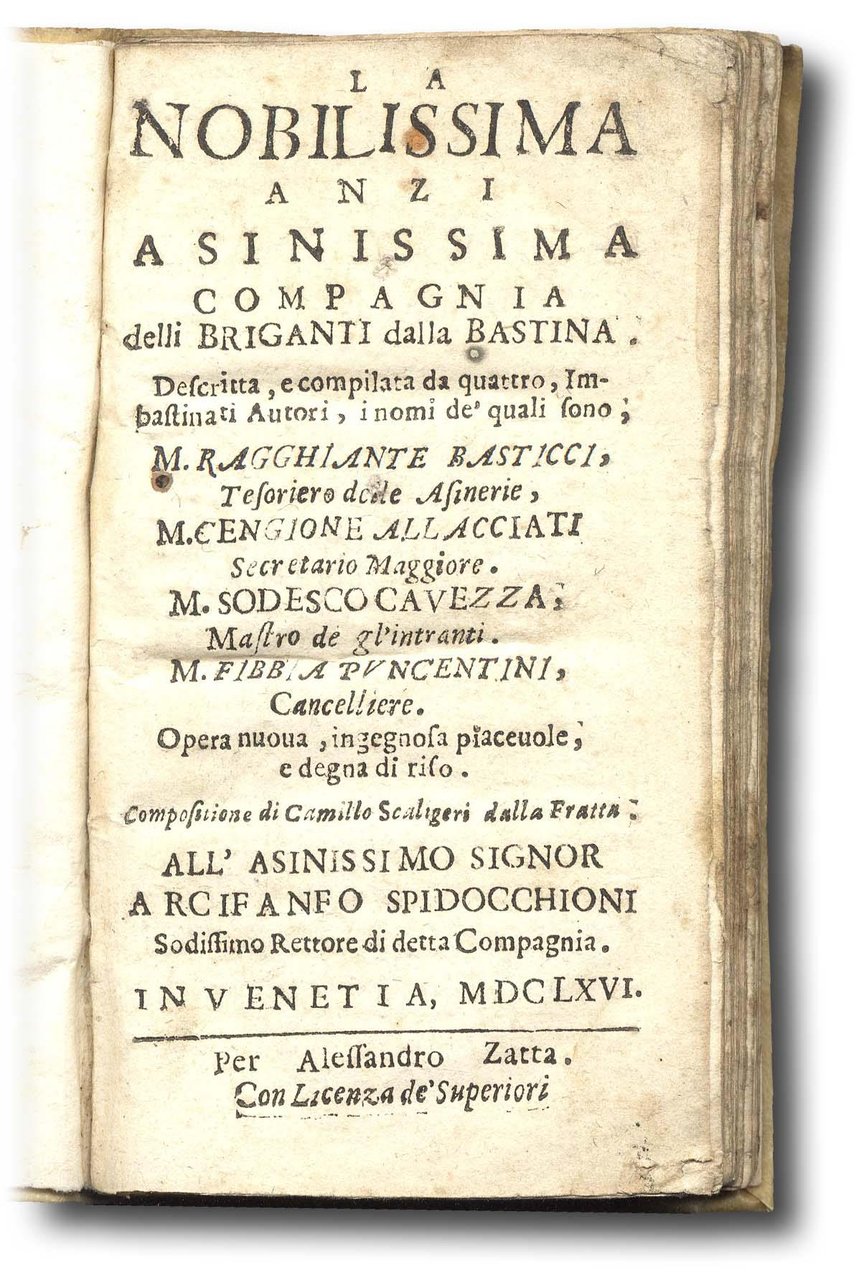 LA
NOBILISSIMA
ANZI
ASINISSIMA
COMPAGNIA
delli BRIGANTI dalla BASTINA.
Deſcritta, e compilata da quattro, Im-
baſtinati Autori, i nomi de' quali ſono;
M. RAGGHIANTE BASTICCI,
Teſoriero delle Aſinerie,
M. CENGIONE ALLACCIATI
Secretario Maggiore.
M. SODESCO CAVEZZA;
Maſtro de gl'intranti.
M. FIBBIA PVNCENTINI,
Cancelliere.
Opera nuoua, ingegnoſa piaceuole;
e degna di riſo.
Compoſitione di Camillo Scaligeri dalla Fratta;
ALL' ASINISSIMO SIGNOR
ARCIFANFO SPIDOCCHIONI
Sodiſſimo Rettore di detta Compagnia.
IN VENETIA, MDCLXVI.
Per Aleſſandro Zatta.
Con Licenza de' Superiori